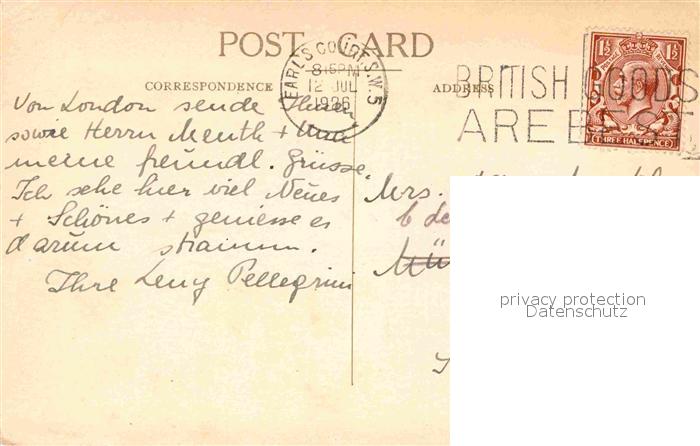 POST CARD
CORRESPONDENCE
ADDRESS
EARLS COURT. S.W.5
8 15 PM
12 JUL
1926
BRITISH GOODS
ARE BEST
1½ 1½
THREE HALFPENCE
Von London sende Ihnen
sowie Herrn Menth +
meine freundl. Grüsse.
Ich sehe hier viel Neues
+ Schönes + geniesse es
darum stramm.
Ihre Leny Pellegrini
Mrs.
privacy protection
Datenschutz